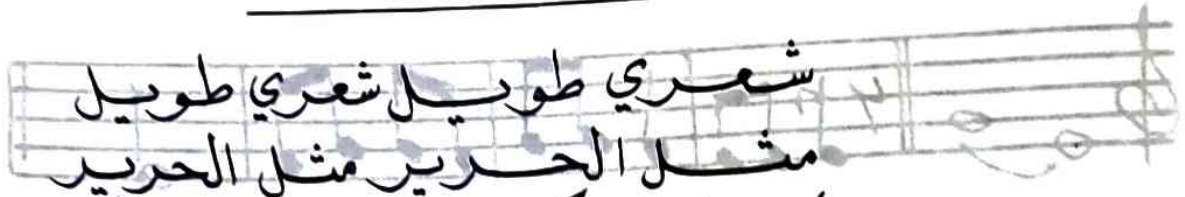 شعري طويل شعري طويل
مثل الحرير مثل الحرير